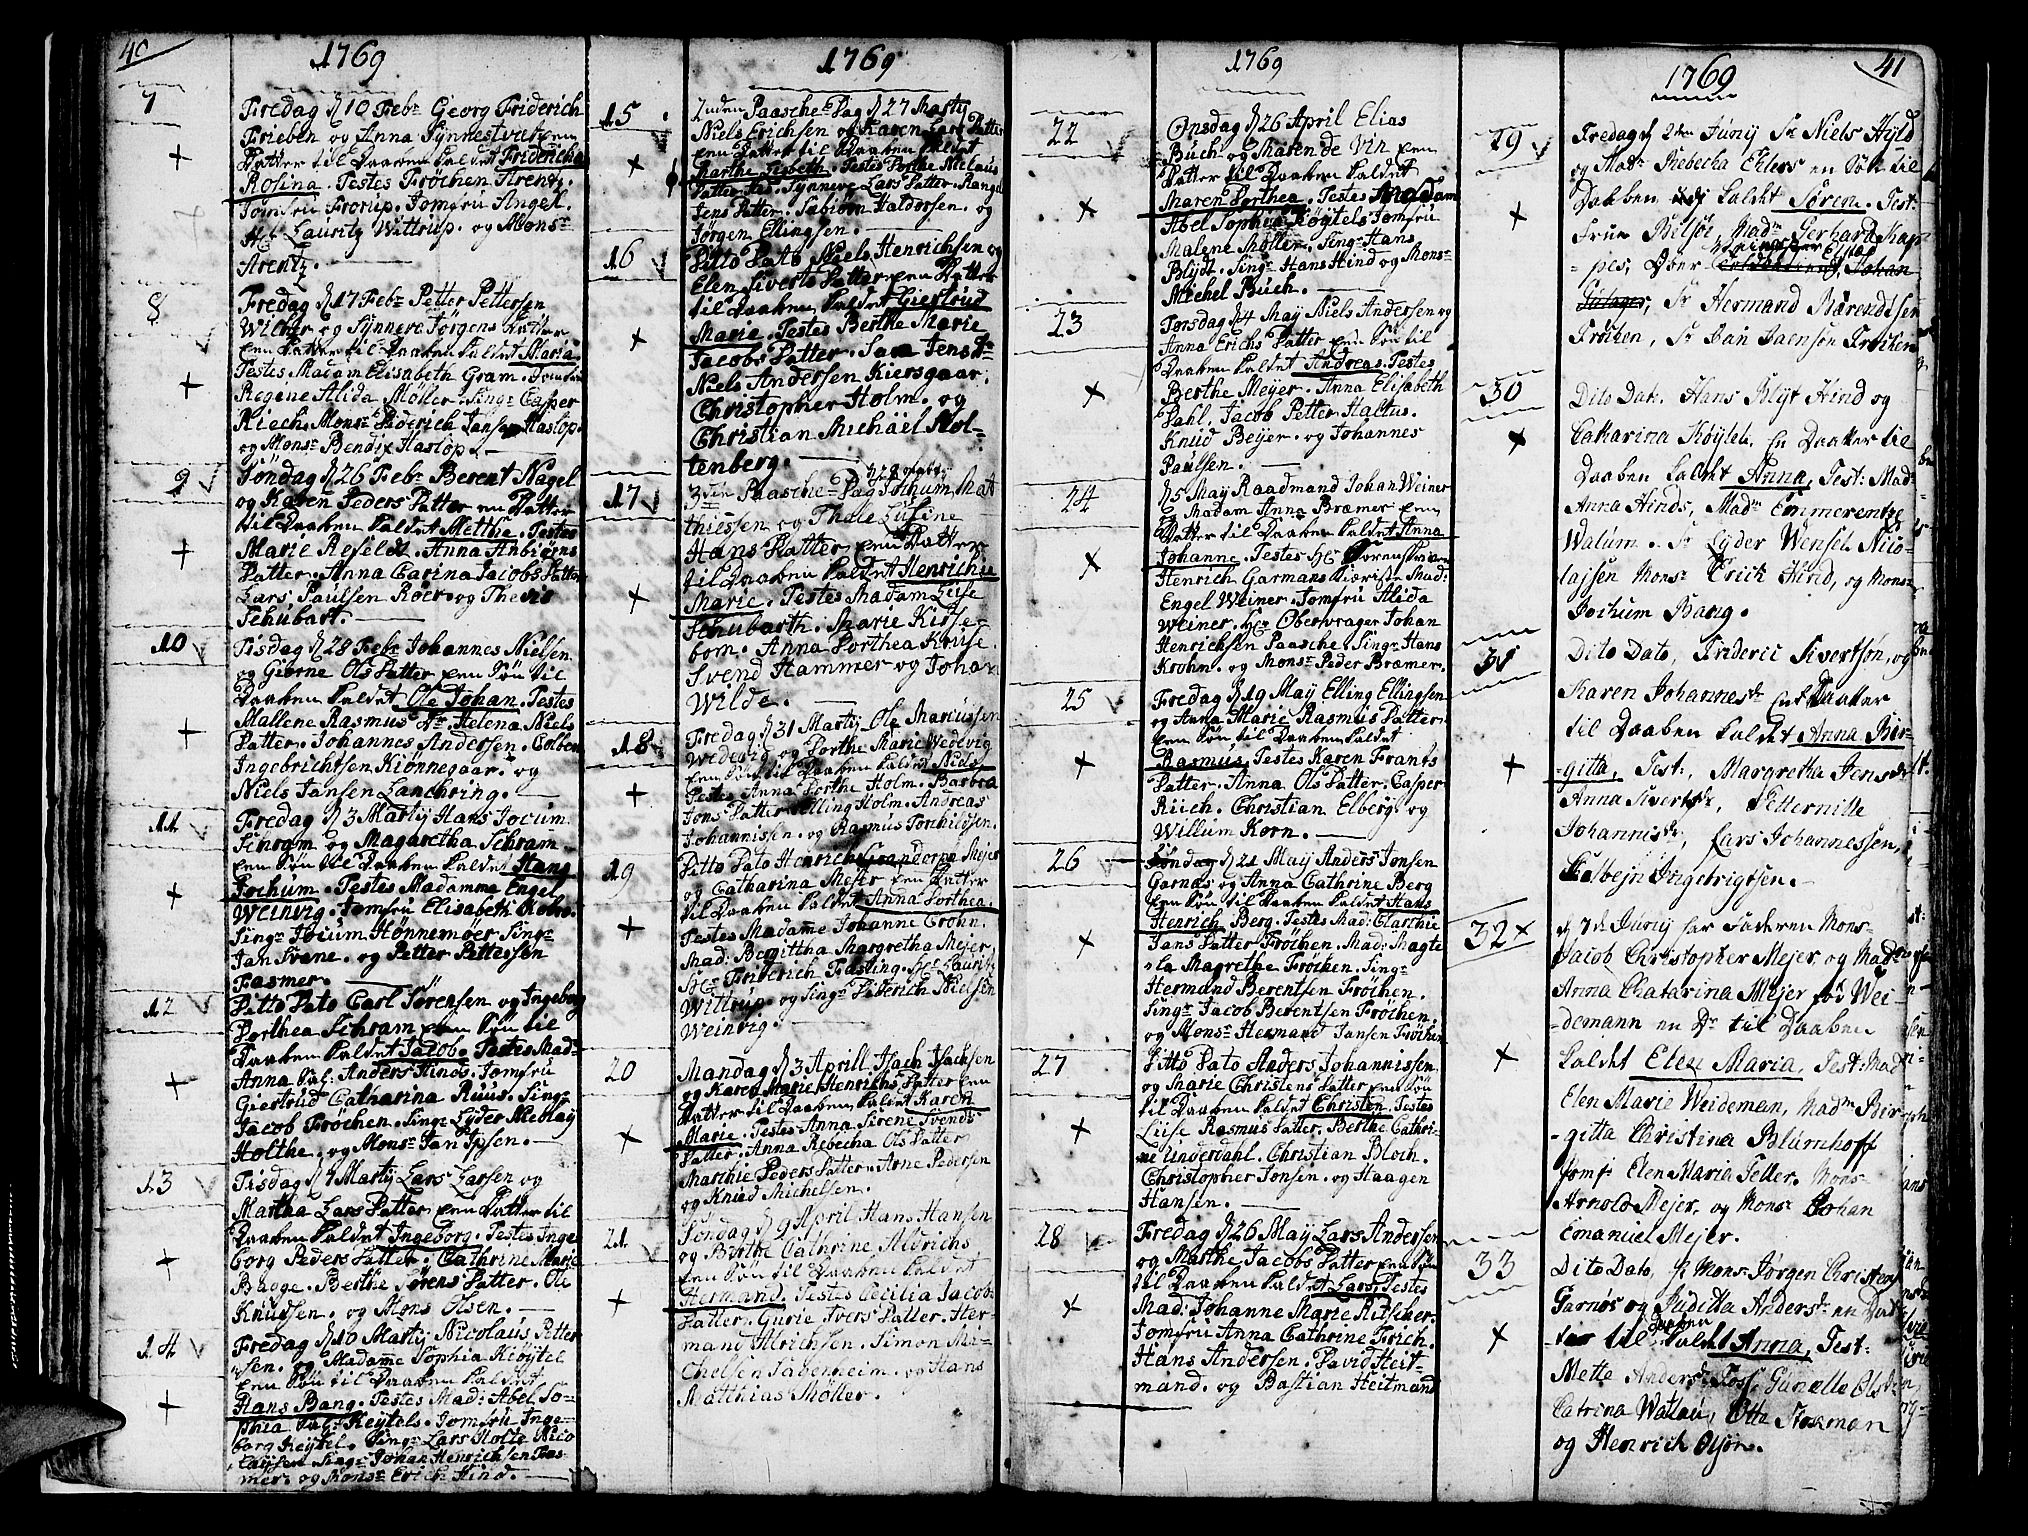 40
1769
7
Fredag d 10 Febr Georg Friderich
Frieben og Anna Synnestvat een
Datter til Daaben kaldet Fridericha
Rosina. Testes Frøchen Arentz.
Jomfrü Frorup. Jomfrü Angel.
Hr Lauritz Wittrup. og Mons:
Arentz.
8
Fredag d 17 Febr Petter Pettersen
Wilcher og Synneve Jørgens Datter
een Datter til Daaben kaldet Maria
Testes Madam Elisabeth Gram. Jomfrü
Regine Alida Møller. Singr Casper
Riech. Monsr Diderich Jansen Haslop.
og Monsr Bendix Haslop.
9
Søndag d 26 Febr Berent Nagel
og Karen Peders Datter en Datter
til Daaben kaldet Metthe. Testes
Marie Refeldt. Anna Anbiørns
Datter. Anna Carina Jacobs Datter
Lars Paulsen Roer. og Thevis
Schubart.
10
Tisdag d 28 Febr Johannes Nielsen
og Giørne Ols Datter een Søn til
Daaben kaldet Ole Johan. Testes
Mallene Rasmus Dr Helena Niels
Datter. Johannes Andersen. Colben
Ingebrichtsen Kiønnegaar. og
Niels Jansen Lanchring.
11
Fredag d 3 Martij Hans Jocum
Schram og Magaretha Schram
een Søn til Daaben kaldet Hans
Jochum. Testes Madamme Engel
Weinvig. Jomfrü Elisabeth Kobro.
Singr Jocum Hønnemoer Singr
Jan Svane. og Petter Pettersen
Fasmer.
12
Ditto Dato Carl Sørensen og Ingeborg
Dorthea Schram een Søn til
Daaben kaldet Jacob. Testes Mad:
Anna Sal: Anders Hinds. Jomfrü
Giertrud Catharina Rüüs. Singr
Jacob Frøchen. Singr Lyder Nieblay
Holthe. og Monsr Jan Ipsen.
13
Tisdag d 7 Martij Lars Larsen og
Martha Lars Datter een Datter til
Daaben kaldet Ingeborg. Testes Inge
borg Peders Datter. Cathrine Marie
Bagge. Berthe Sørens Datter. Ole
Knudsen. og Mons Olsen.
14
Fredag d 10 Martij Nicolaüs Petter
sen. og Madamme Sophia Kiøytel
een Søn til Daaben kaldet
Hans Bang. Testes Mad: Abel So=
phia Sal: Keÿtels. Jomfrü Inge=
borg Keÿtel. Singr Lars Holte Nico
laÿsen Singr Johan Henrichsen Fas
mer. og Monsr Erich Hind.
1769
15
2nden Paasche=Dag d 27 Martij
Niels Erichsen og Karen Lars Datter
een Datter til Daaben kaldet
Marthe Lisbeth. Testes Dorthe Nielaus
Datter Synneve Lars Datter. Rangel
Jens Datter. Sabiørn Haldorsen. og
Jørgen Ellingsen.
16
Ditto Dato Niels Henrichsen og
Elen Siverts Datter een Datter
til Daaben kaldet Giertrud
Marie. Testes Berthe Marie
Jacobs Datter. Sara Jens Dr
Niels Andersen Kiersgaar.
Christopher Holm. og
Christian Michäel Hol-
tenberg.
17
d 28 Martij
3die Paasche=Dag Jochum Mat
thiessen og Thale Lusine
Hans Datter een Datter
til Daaben kaldet Henrichie
Marie. Testes Madam Leise
Schubarth. Marie Kirse
bom. Anna Dorthea Kruse.
Svend Hammer og Johan
Wilde.
18
Fredag d 31 Martij Ole Marcussen
Wedevig og Dorthe Marie Wedevig
een Søn til Daaben kaldet Niels
Testes Anna Dorthe Holm. Barbra
Jons Datter Elling Holm. Andreas
Johannissen. og Rasmus Torkildsen.
19
Ditto Dato Henrich Meÿer
og Catharina Meÿer een Datter
til Daaben kaldet Anna Dorthea.
Testes Madamme Johanne Crohn.
Mad: Bergittha Margretha Meÿer
Hr Friderich Fasting. Hr Lauritz
Wittrup. og Singr Diderich Nielsen
Weinvig.
20
Mandag d 3 Aprill Isach Isachsen
og Karen Marie Henrichs Datter een
Datter til Daaben kaldet Karen
Marie. Testes Anna Sirene Svends
Datter. Anna Rebecha Ols Datter
Marthe Peders Datter. Arne Pedersen
og Knüd Michelsen.
21
Søndag d 9 April Hans Hansen
og Birthe Cathrine Aldrichs
een Søn til Daaben kaldet
Hermand. Testes Cecilia Jacob
Datter. Gurie Ivers Datter. Her
mand Ulrichsen. Simon Ma=
Chelsen Sadenheim. og Hans
Matthias Møller.
1769
22
Onsdag d 26 April Elias
Büch og Maren de Vin een
Datter til Daaben kaldet
Maren Dorthea. Testes Madam
Abel Sophia Køÿtels Jomfrü
Malene Møller. Singr Hans
Blÿdt. Singr Hans Hind og Mons=
Michel Büch.
23
Torsdag d 4 Maÿ Niels Andersen og
Anna Erichs Datter een Søn til
Daaben kaldet Andreas. Testes
Berthe Meÿer. Anna Elisabeth
Dahl. Jacob Petter Haltus.
Knüd Beÿer. og Johannes
Paulsen.
24
d 5 Maÿ Raadmand Johan Weiner
og Madam Anna Bræmer een
Datter til Daaben kaldet Anna
Johanne. Testes Hr Sorenskriver
Henrich Garmans Kiæriste Mad:
Engel Weiner. Jomfrü Alida
Weiner. Hr Obervrager Johan
Henrichsen Paasche. Singr Hans
Krohn. og Monsr Peder Bræmer.
25
Fredag d 19 Maÿ Elling Ellingsen
og Anna Marie Rasmus Datter
een Søn til Daaben kaldet
Rasmus. Testes Karen Frants
Datter. Anna Ols Datter. Casper
Riich. Christian Elberg. og
Willum Korn.
26
Søndag d 21 Maÿ Anders Jonsen
Garnæs og Anna Cathrine Berg
een Søn til Daaben kaldet Hans
Henrich Berg. Testes Mad: Clarthie
Jans Datter Frøchen. Mad: Magte
la Magrethe Frøchen. Singr
Hermand Berentsen Frøchen.
Singr Jacob Berentsen Frøchen.
og Monsr Hermand Jansen Frøchen
27
Ditto Dato Anders Johannissen
og Marie Christens Datter een Søn
til Daaben kaldet Christen. Testes
Leise Rasmus Datter. Berthe Cathri=
ne Underdahl. Christian Bloch.
Christopher Jonsen. og Haagen
Hansen.
28
Fredag d 26 Maÿ Lars Andersen
og Marthe Jacobs Datter een Søn
til Daaben kaldet Lars. Testes
Mad: Johanne Marie Ritscher
Jomfrü Anna Cathrine Irich.
Hans Andersen. David Heit=
mand. og Bastian Heitmand
1769
41
29
Fredag d 2den Junij Sr Niels Hÿld
og Madm Rebecha Ehlers en Søn til
Daaben kaldt Søren. Test:
Frue Bilsøe, Madm Gerhard Kap
pes, Doer
Sr Hermand Bærendtsen
Frøken, Sr Jan Jaensøn Frøken
30
Dito Dat. Hans Blÿt Hind og
Catharina Køÿtel. En Daatter til
Daaben kaldt Anna, Test: Mad:
Anna Hinds, Madm Emmerentze
Walüm. Sr Lÿder Wensel Nico
lajsen Monsr Erick Hind, og Monsr
Jochum Bang.
31
Dito Dato, Frideric Sivertsøn, og
Karen Johannesdr En Daatter
til Daaben kaldet Anna Bir-
-gitta, Test:, Margretha Jensdr
Anna Sivertsdr, Petternille
Johannisdr, Lars Johannessen,
Kolbejn Ingebrigtsen.
32
d 7de Junij har Faderen Mons=
Jacob Christopher Mejer og Madm
Anna Chatarina Mejer fød Wei
-demann en Dr til Daaben
kaldt Elen Maria, Test: Mad
Elen Marie Weideman, Madm Bir
-gitta Christina Blumhoff
Jomf: Elen Maria Teller. Mons=
Arnold Mejer, og Monsr Johan
Emanuel Mejer.
33
Dito Dato, Monsr Jørgen Christens
Garnøs og Juditta Andersdr en Dat
ter til Daaben kaldt Anna, Test:
Mette Andersdr Foss, Gunelle Olsdr
Catrina Watlau, Otte Stokman
og Henrich Olsøn.